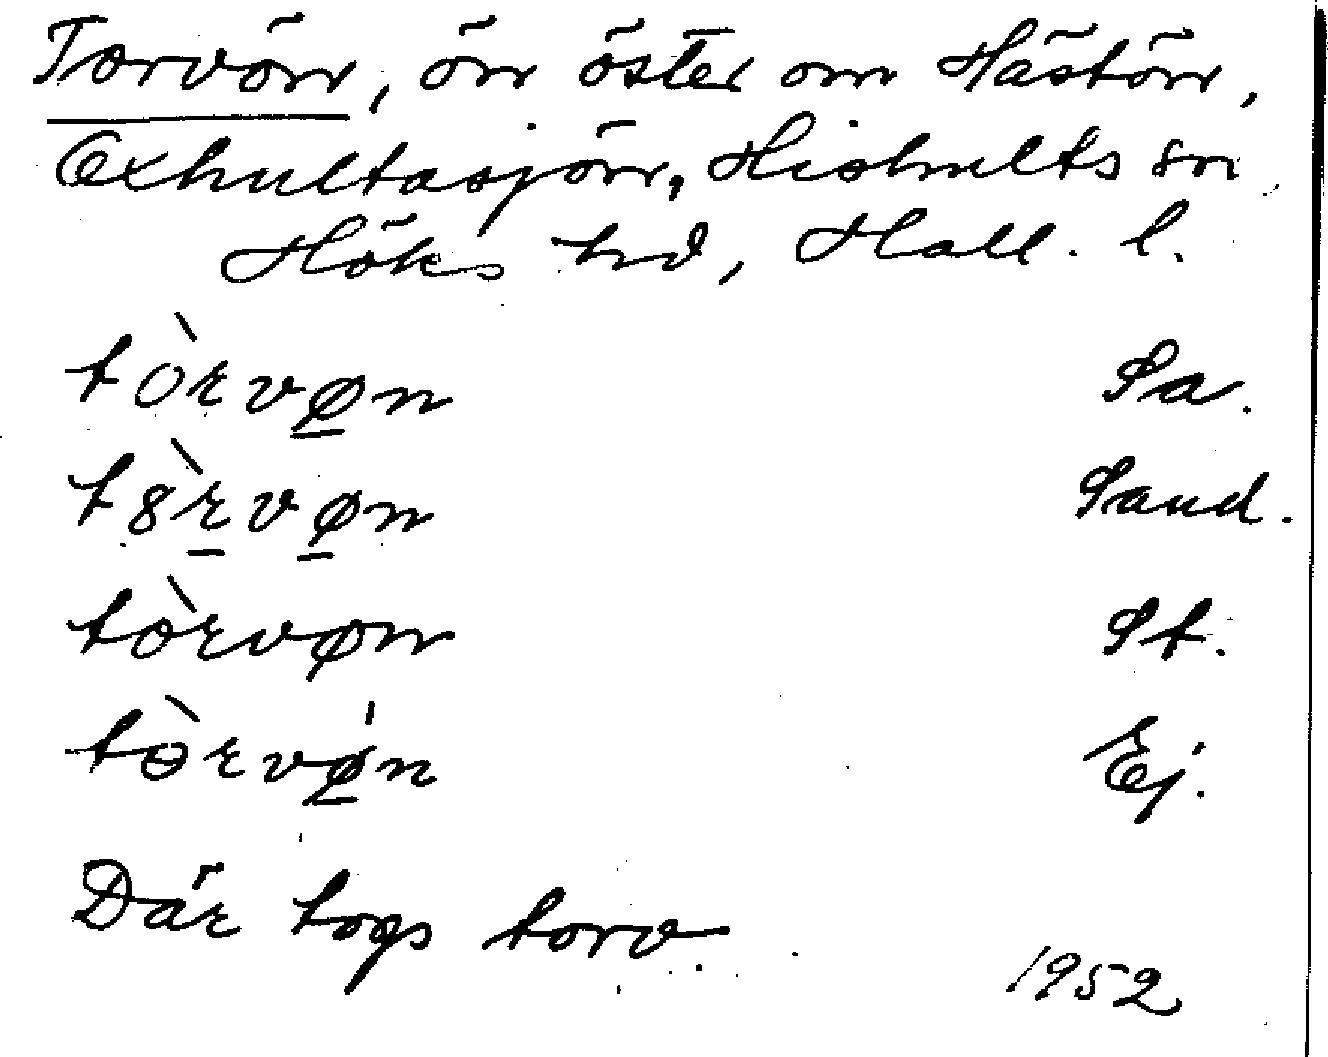 Torvön, ön öster om Hästön,
Oxhultasjön, Hishults sn
Höks hd, Hall. l.
tòrvøn Sa.
t8̀rvøn Sand.
tòrvøn St.
tòrvø̍n Ej.
Där togs torv.
1952